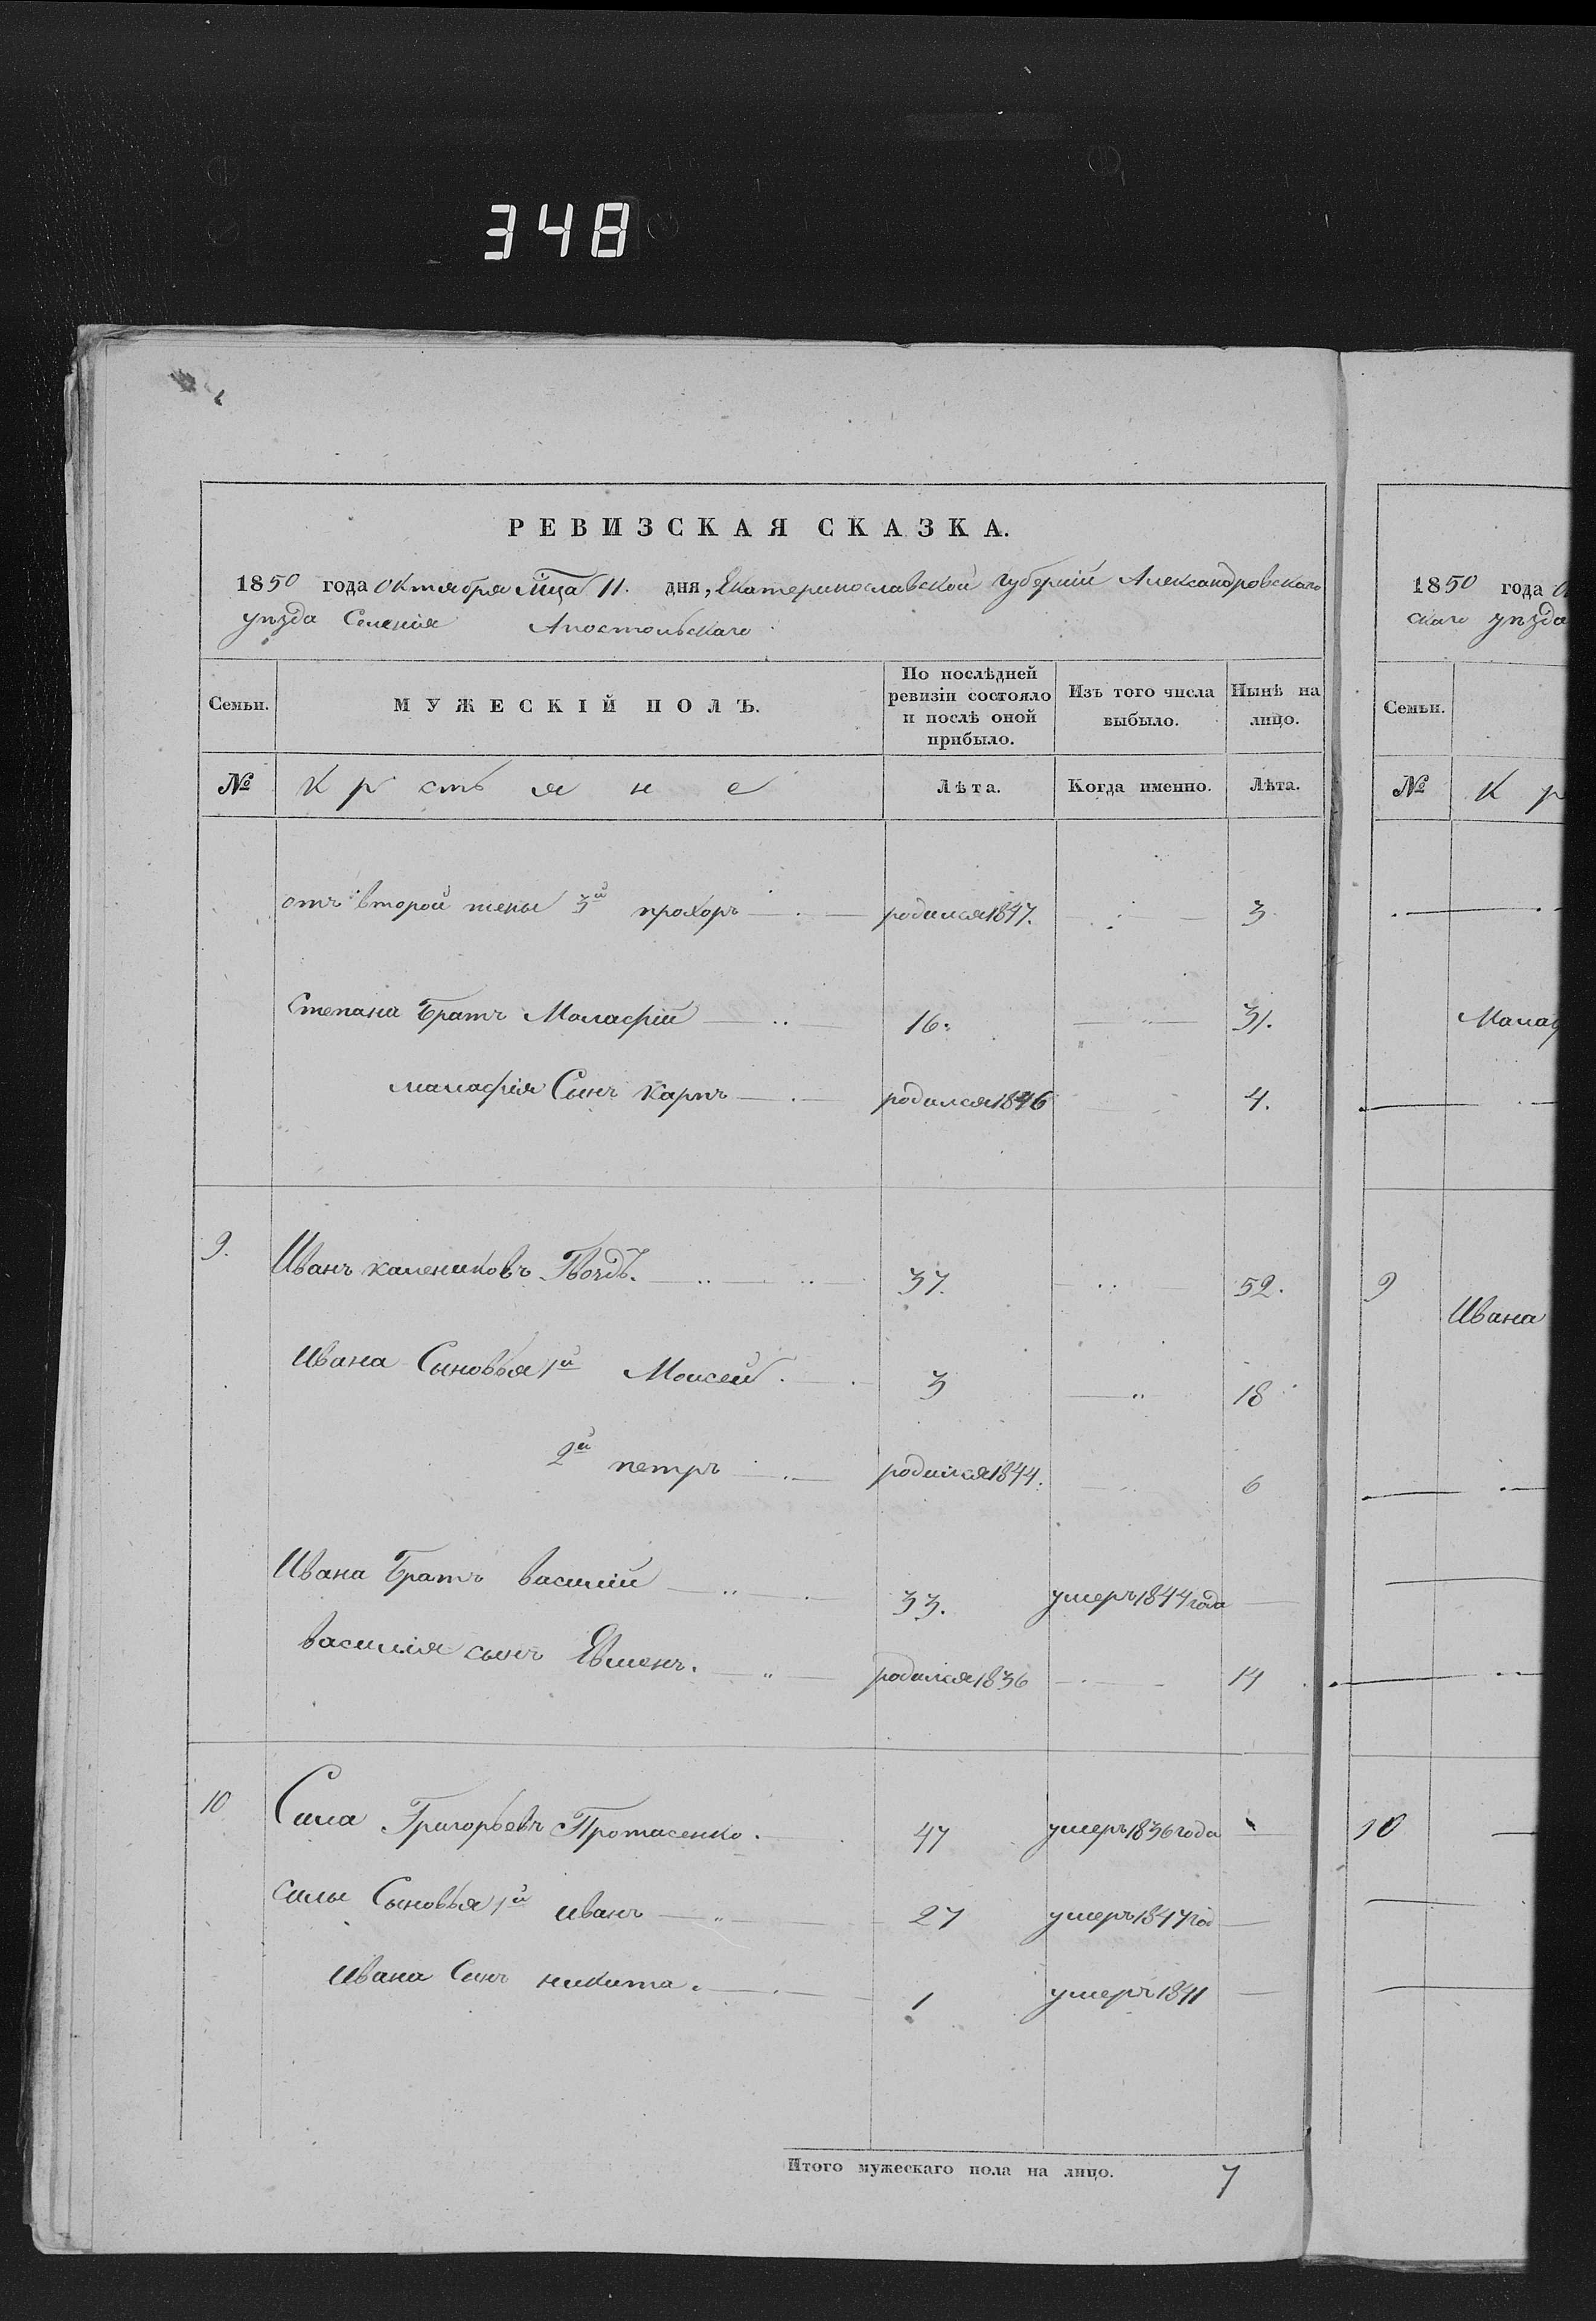 348
РЕВИЗСКАЯ СКАЗКА.
1850 года Октября мца 11. дня, Екатеринославской Губерніи Александровскаго
уѣзда Селенія Апостольскаго
Семьи. МУЖЕСКІЙ ПОЛЪ. По послѣдней ревизіи состояло и послѣ оной прибыло. Изъ того числа выбыло. Нынѣ на лицо.
№ Крстьяне Лѣта. Когда именно. Лѣта.
отъ второй жены 3й прохоръ родился 1847. 3
Степана Братъ Малафій 16. 31.
малафія Сынъ Карпъ родился 1846 4.
9. Иванъ калениковъ Гвоздь. 37. 52.
Ивана Сыновья 1й Моисей. 3 18
2й петръ родился 1844. 6
Ивана Братъ василій 33. умеръ 1844 года
василія сынъ Евменъ. родился 1836 14
10 Сила Григорьевъ Протасенко. 47 умеръ 1836 года
силы Сыновья 1й иванъ 27 умеръ 1847 год
Ивана Сынъ никита. 1 умеръ 1841
Итого мужескаго пола на лицо. 7
1850 года О
скаго уѣзда
Семьи.
№ К р
Малаф
9 Ивана
10